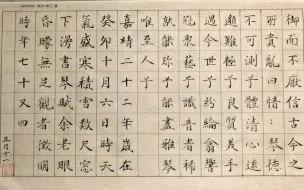 御而不厭信古今之
所貴亂曰愔愔琴德
不可測兮體清心遠
邈難極兮良質美手
遇今世兮紛綸翕響
冠眾藝兮識音者希
孰能珍兮能盡雅琴
唯至人兮
嘉靖二十二年歲在
癸卯十二月六日時
氣盛寒積雪數尺窗
下漫書琴賦余老眼
昏曚無足觀者徵明
時年七十又四
正月十一